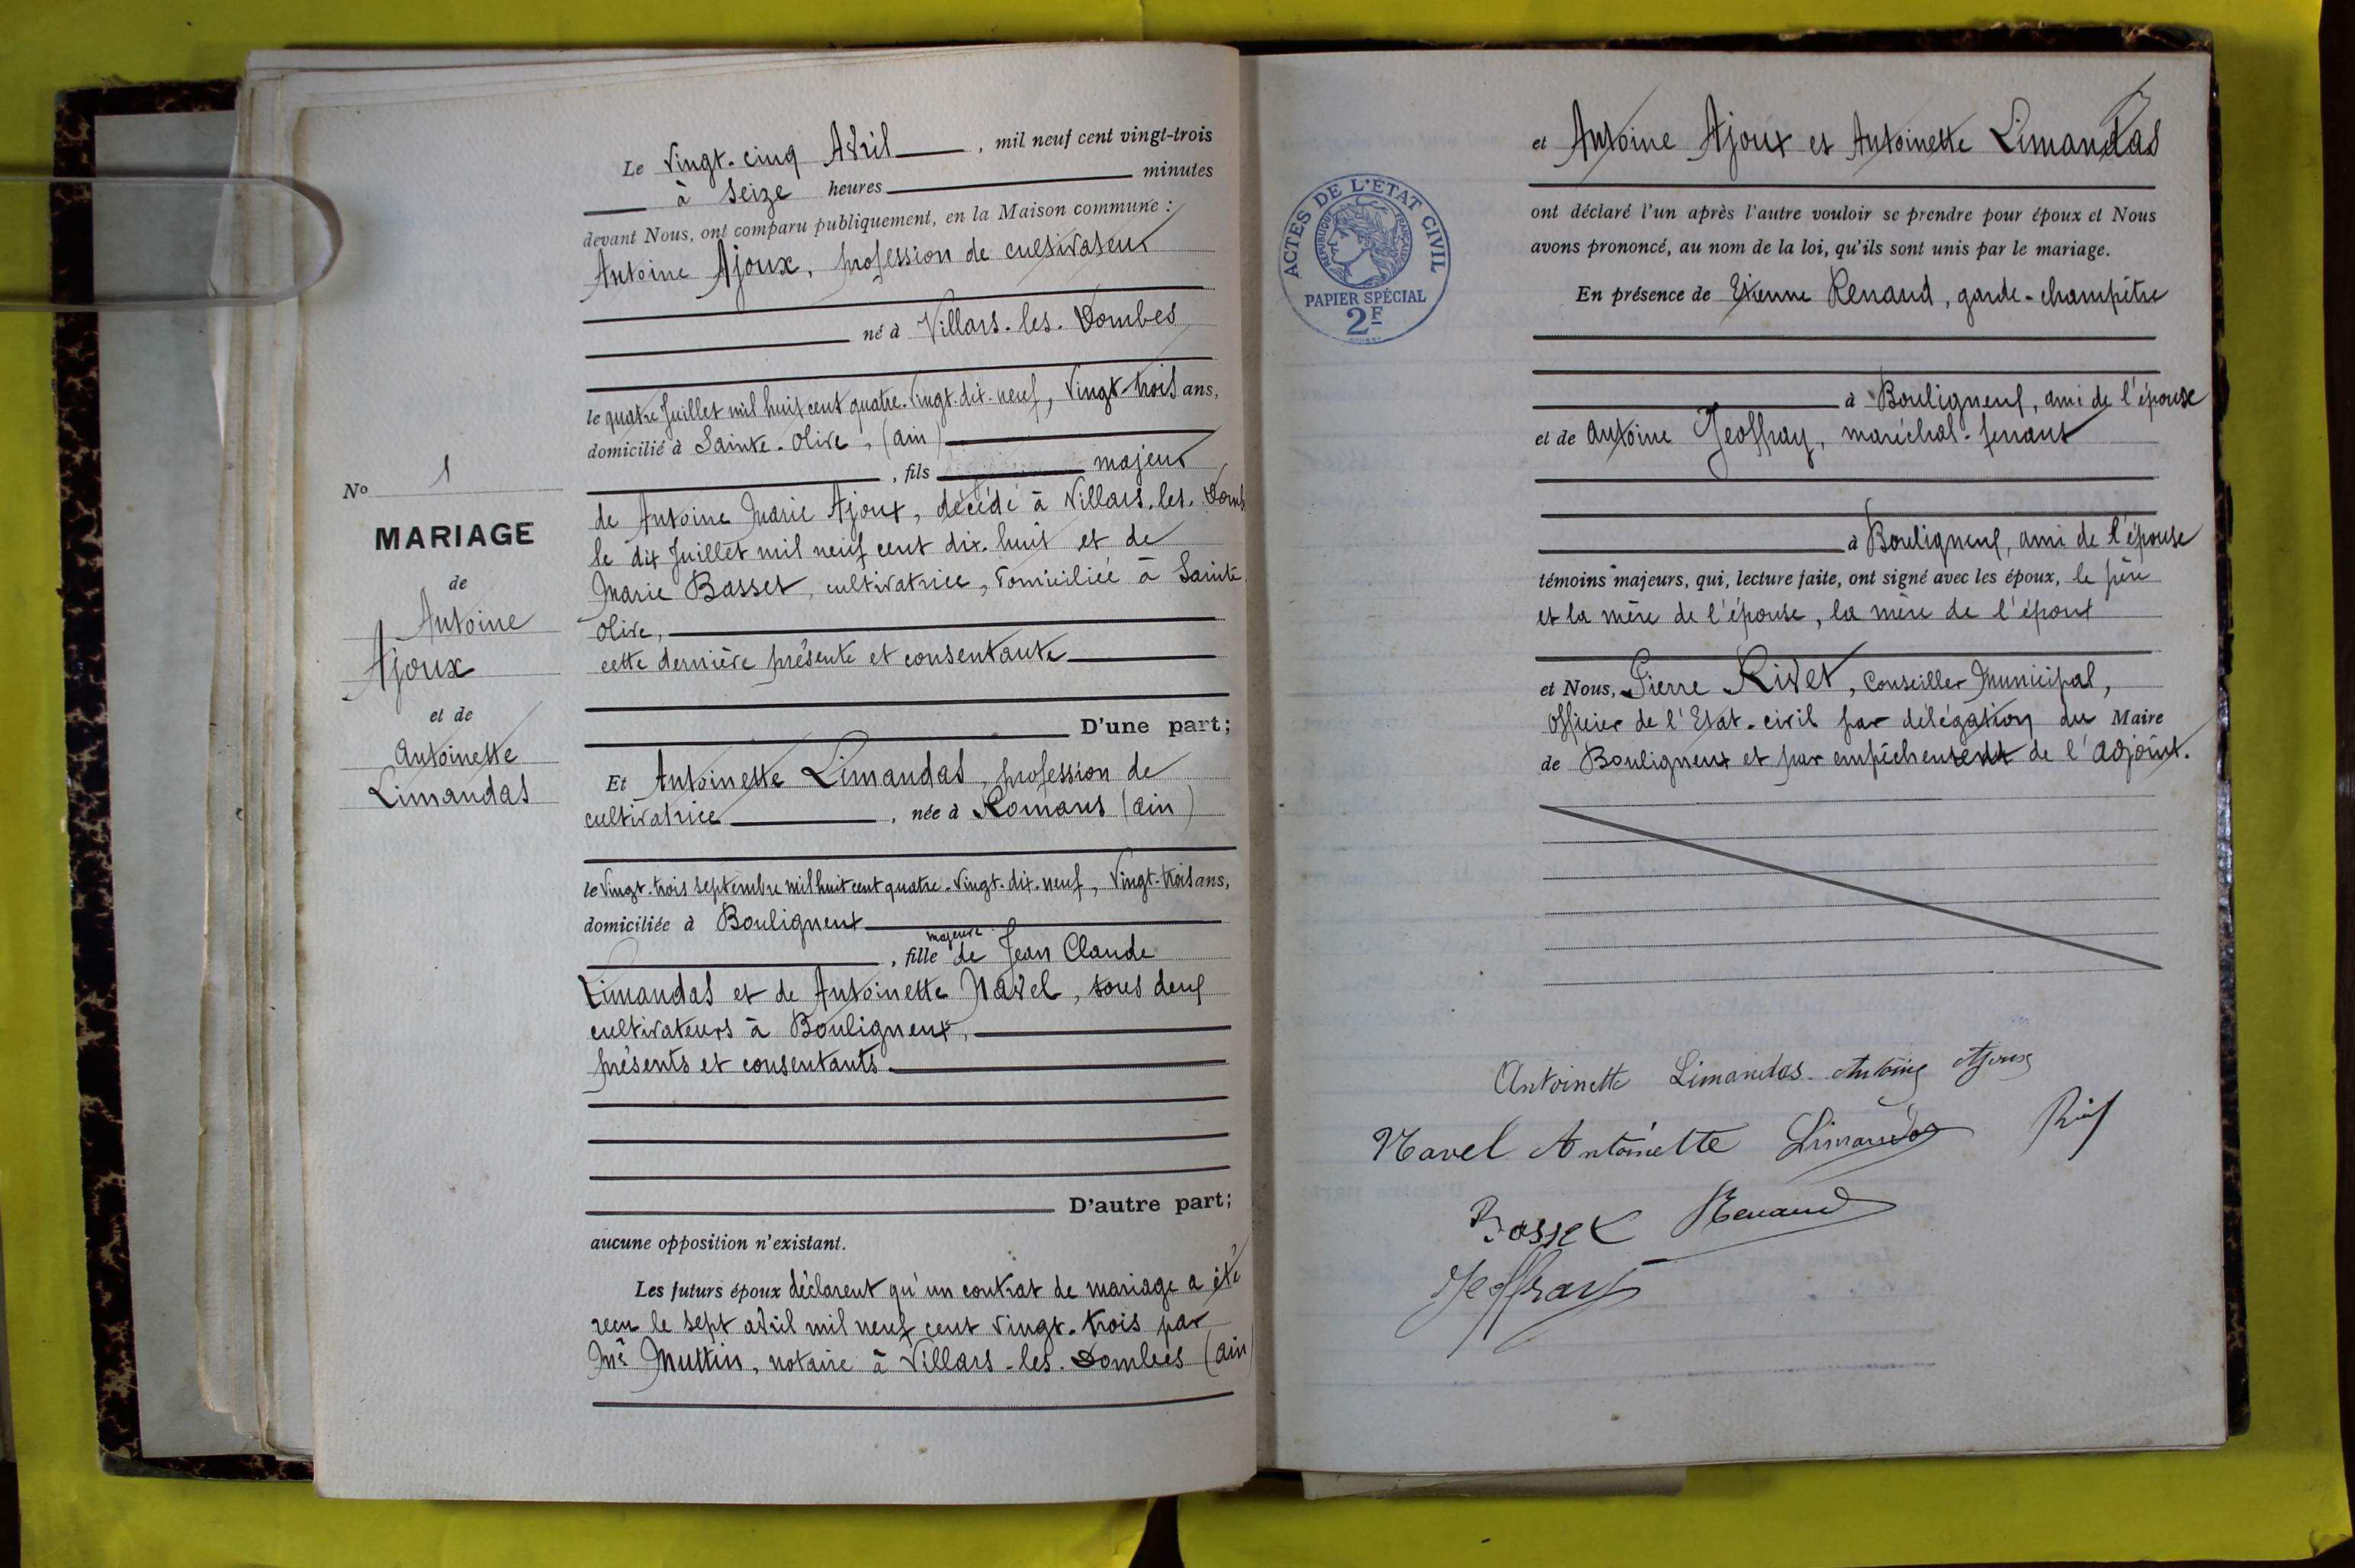 Le Vingt-cinq Avril, mil neuf cent vingt-trois
à Seize heures minutes
devant Nous, ont comparu publiquement, en la Maison commune :
Antoine Ajoux, profession de cultivateur
né à Villars-les-Dombes
le quatre Juillet mil huit cent quatre-Vingt-dix-neuf, Vingt-trois ans,
domicilié à Sainte-Olive, (ain)
, fils majeur
de Antoine Marie Ajoux, décédé à Villars-les-Domb
le dix Juillet mil neuf cent dix-huit et de
Marie Basset, cultivatrice, domiciliée à Sainte
Olive,
cette dernière présente et consentante
D'une part;
Et Antoinette Limandas, profession de
cultivatrice, née à Romans (ain)
le Vingt-trois septembre mil huit cent quatre-Vingt-dix-neuf, Vingt-trois ans,
domiciliée à Bouligneux
majeure
, fille de Jean Claude
Limandas et de Antoinette Navel, tous deux
cultivateurs à Bouligneux,
présents et consentants.
D'autre part;
aucune opposition n'existant.
Les futurs époux déclarent qu'un contrat de mariage a été
reçu le sept avril mil neuf cent vingt-trois par
Me Muttin, notaire à Villars-les-Dombes (ain)
No 1
MARIAGE
de
Antoine
Ajoux
et de
Antoinette
Limandas
ACTES DE L'ÉTAT CIVIL
RÉPUBLIQUE FRANÇAISE
PAPIER SPÉCIAL
2F
et Antoine Ajoux et Antoinette Limandas
ont déclaré l'un après l'autre vouloir se prendre pour époux et Nous
avons prononcé, au nom de la loi, qu'ils sont unis par le mariage.
En présence de Etienne Renaud, garde-champêtre
à Bouligneux, ami de l'épouse
et de Antoine Geoffray, maréchal-ferrant
à Bouligneux, ami de l'épouse
témoins majeurs, qui, lecture faite, ont signé avec les époux, le père
et la mère de l'épouse, la mère de l'époux
et Nous, Pierre Rivet, Conseiller Municipal,
Officier de l'Etat-civil par délégation du Maire
de Bouligneux et par empêchement de l'adjoint.
Antoinette Limandas Antoine Ajoux
Navel Antoinette Limandas
Basset Renaud
Geoffray